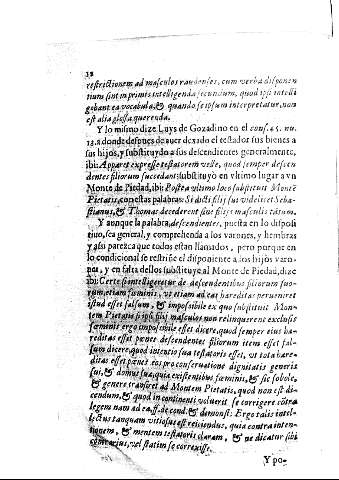 12
restrictionem ad masculos raudenses, cum verba disponen
tium sint in primis intelligenda secundum, quod ipsi intelli
gebant ea vocabula, & quando se ipsum interpretatur, non
est alia glossa querenda.
Y lo mismo dize Luys de Gozadino en el cons. 45. nu.
12. a donde despues de auer dexado el testador sus bienes a
sus hijos, y substituydo a sus descendientes generalmente,
ibi: Apparet expresse testatorem velle, quod semper descen
dentes filiorum succedant: substituydo en vltimo lugar a vn
Monte de Piedad, ibi: Postea vltimo loco substituit Monte
Pietatis, con estas palabras: Si dicti filij sui videlicet Seba-
stianus, & Thomas decederent sine filijs masculis tãtum.
Y aunque la palabra, descendientes, puesta en lo disposi
tiuo, sea general, y comprehenda a los varones, y hembras
y assi parezca que todos estan llamados, pero porque en
lo condicional se restriñe el disponente a los hijos varo-
nes, y en falta dellos substituye al Monte de Piedad, dize
ibi: Certe si intelligeretur de descendentibus filiorum suo-
rum, etiam fœminis, vt etiam ad eas hæreditas perueniret
istud esset falsum, & impossibile ex quo substituit Mon-
tem Pietatis si ipsi filij masculos non relinquerent exclusis
fœminis ergo impossibile esset dicere, quod semper eius hæ-
reditas esset penes descendentes filiorum item esset fal-
sum dicere, quod intentio sua testatoris esset, vt tota hære-
ditas esset penes eos pro conseruatione dignitatis generis
sui, & domus sua, quia existentibus fœminis, & sic sobole,
& genere transiret ad Montem Pietatis, quod non est di-
cendum, & quod in continenti voluerit se corrigere cõtra
legem nam ad ea, ff. de cond. & demonst: Ergo talis intel-
lectus tanquam vitiosus est reiiciendus, quia contra inten-
tionem, & mentem testatoris claram, & ne dicatur sibi
contrarius, vel statim se correxisse.
Y po-